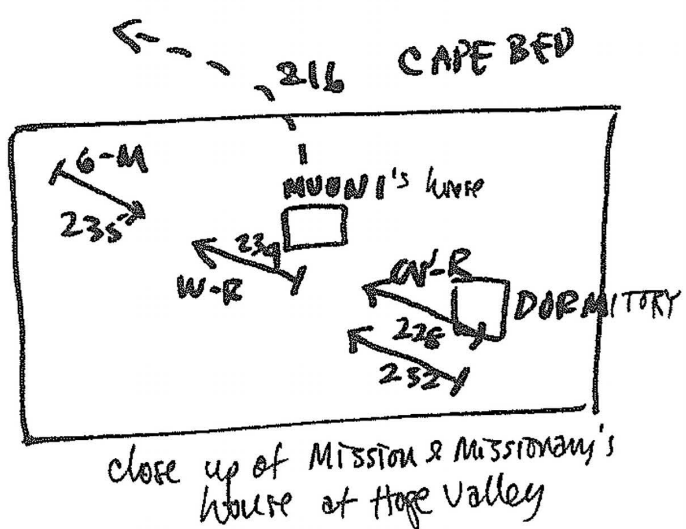 216 CAPE BED
6-M
235
MUONI's house
239
W-R
W-R
DORMITORY
228
232
close up of Mission & Missionary's
house at Hope Valley